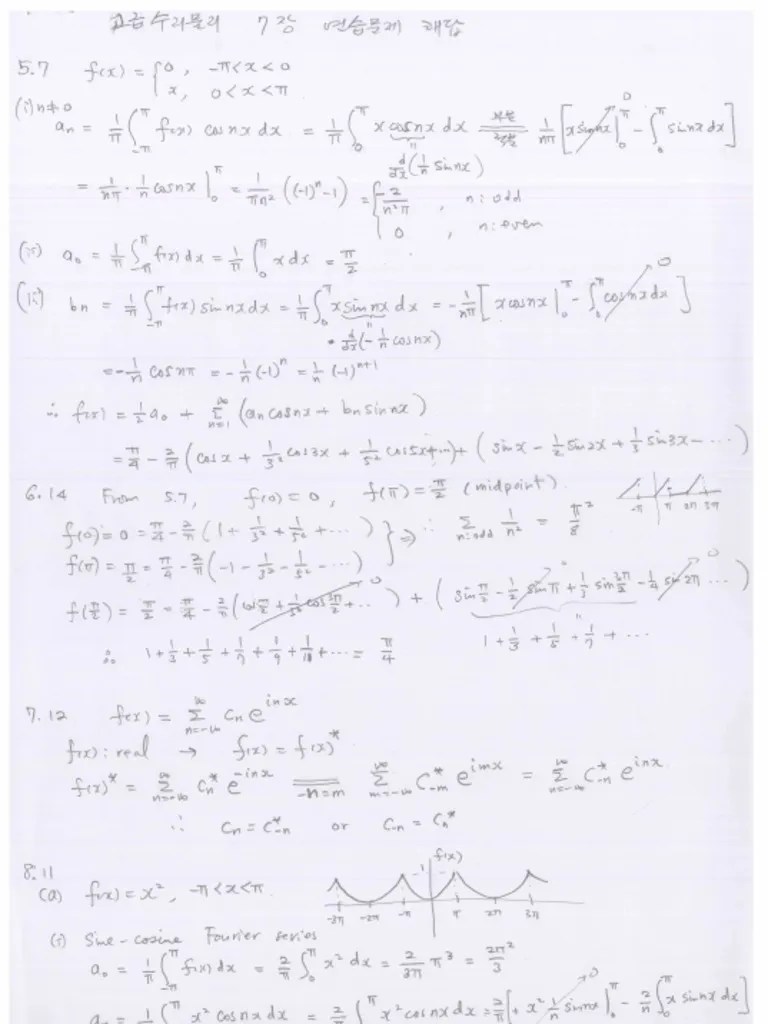 고급수리물리 7장 연습문제 해답
5.7 f(x) = { 0, -π<x<0
x, 0<x<π
(i) n≠0
aₙ = 1/π ∫_{-π}^{π} f(x) cosnx dx = 1/π ∫_0^π x cosnx dx 부분적분 1/nπ [x sinnx |_0^π - ∫_0^π sinnx dx]
0
" d/dx(1/n sinnx)
= 1/nπ · 1/n cosnx |_0^π = 1/πn² ((-1)ⁿ-1) = { -2/n²π , n: odd
0 , n: even
(ii) a₀ = 1/π ∫_{-π}^{π} f(x) dx = 1/π ∫_0^π x dx = π/2
(iii) bn = 1/π ∫_{-π}^{π} f(x) sinnx dx = 1/π ∫_0^π x sinnx dx = -1/nπ [x cosnx |_0^π - ∫_0^π cosnx dx]
0
" d/dx(-1/n cosnx)
= -1/n cosnπ = -1/n (-1)ⁿ = 1/n (-1)ⁿ⁺¹
∴ f(x) = 1/2 a₀ + Σ_{n=1}^∞ (an cosnx + bn sinnx)
= π/4 - 2/π (cosx + 1/3² cos3x + 1/5² cos5x + ...) + (sinx - 1/2 sin2x + 1/3 sin3x - ...)
6.14 From 5.7, f(0) = 0, f(π) = π/2 (midpoint).
-π π 2π 3π
f(0) = 0 = π/4 - 2/π (1 + 1/3² + 1/5² + ...) } ⇒ ∴ Σ_{n:odd} 1/n² = π²/8
f(π) = π/2 = π/4 - 2/π (-1 - 1/3² - 1/5² - ...)
f(π/2) = π/2 = π/4 - 2/π (cos π/2 + 1/3² cos 3π/2 + ...) + (sin π/2 - 1/2 sinπ + 1/3 sin 3π/2 - 1/4 sin 2π ...)
0 0
" 1 + 1/3 + 1/5 + 1/7 + ...
∴ 1 + 1/3 + 1/5 + 1/7 + 1/9 + 1/11 + ... = π/4
7.12 f(x) = Σ_{n=-∞}^∞ Cn e^{inx}
f(x): real → f(x) = f(x)*
f(x)* = Σ_{n=-∞}^∞ Cn* e^{-inx} = -n=m Σ_{m=-∞}^∞ C₋m* e^{imx} = Σ_{n=-∞}^∞ C₋n* e^{inx}
∴ Cn = C₋n* or C₋n = Cn*
8.11
(a) f(x) = x², -π<x<π.
f(x)
-1
-3π -2π -π π 2π 3π
(i) Sine-cosine Fourier series
a₀ = 1/π ∫_{-π}^{π} f(x) dx = 2/π ∫_0^π x² dx = 2/3π π³ = 2π²/3
an = 1/π ∫^π x² cosnx dx = 2/π ∫^π x² cosnx dx = 2/π [+ x² 1/n sinnx |_0^π - 2/n ∫_0^π x sinnx dx]
0